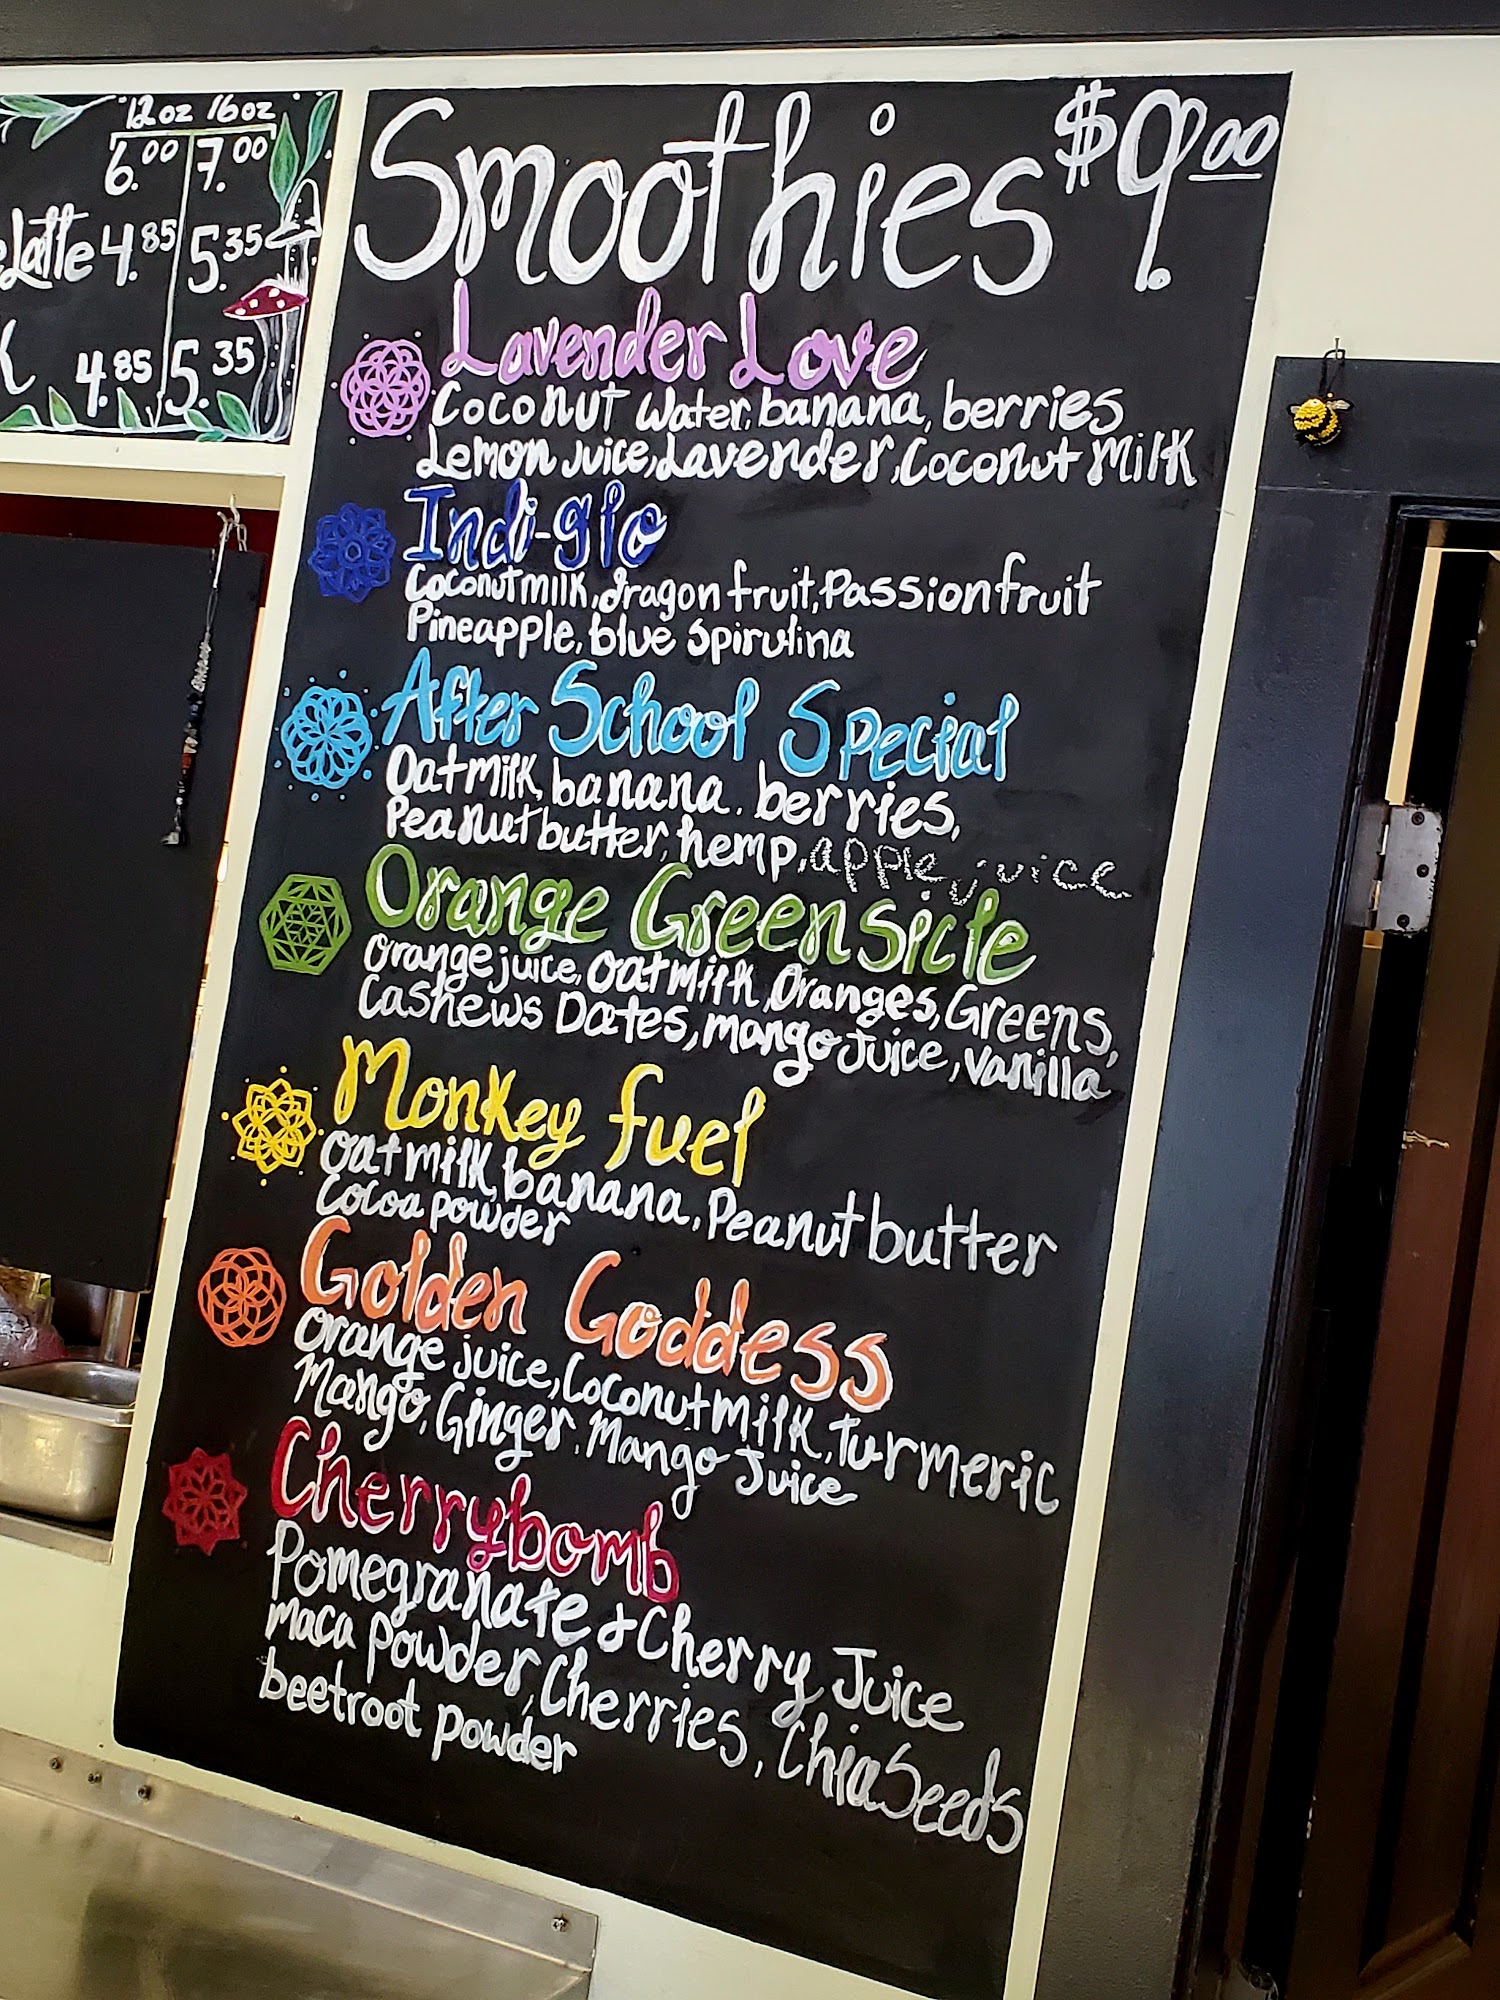 12oz 16oz
6.00 7.00
Latte 4.85 5.35
K 4.85 5.35
Smoothies $9.00
Lavender Love
Coconut Water, banana, berries
Lemon juice, Lavender, Coconut Milk
Indi-glo
Coconut milk, dragon fruit, Passionfruit
Pineapple, blue Spirulina
After School Special
Oatmilk, banana, berries,
Peanut butter, hemp, apple juice
Orange Greensicle
Orange juice, Oatmilk, Oranges, Greens,
Cashews Dates, mango Juice, Vanilla
Monkey fuel
Oatmilk, banana, Peanut butter
Cocoa powder
Golden Goddess
Orange juice, Coconut milk, turmeric
Mango, Ginger, Mango Juice
Cherrybomb
Pomegranate & Cherry Juice
Maca Powder, Cherries, Chia Seeds
beetroot powder